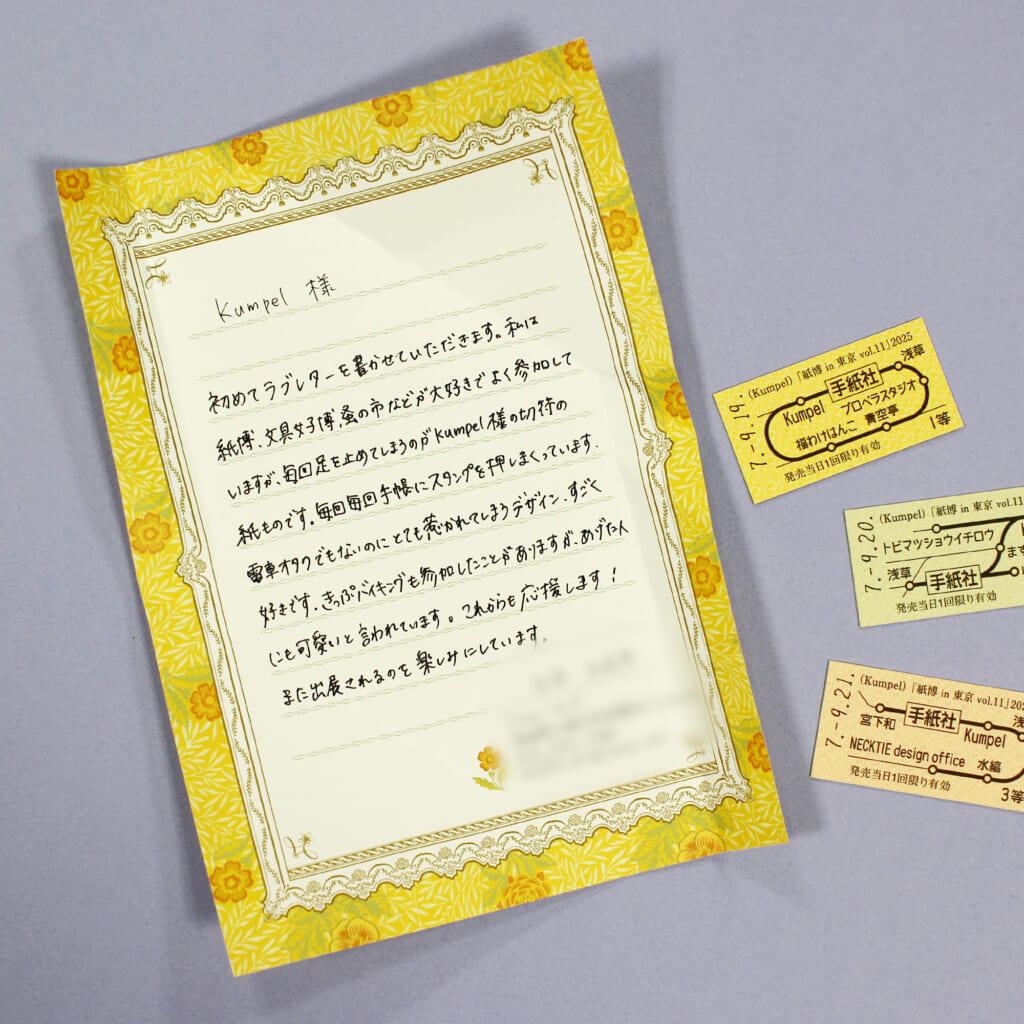 Kumpel 様
初めてラブレターを書かせていただきます。私は
紙博、文具女子博、蚤の市などが大好きでよく参加して
いますが、毎回足を止めてしまうのがKumpel様の切符の
紙ものです。毎回毎回手帳にスタンプを押しまくっています。
電車オタクでもないのにとても惹かれてしまうデザイン、すごく
好きです。きっぷバイキングも参加したことがありますが、あげた人
にも可愛いと言われています。これからも応援します！
また出展されるのを楽しみにしています。
(Kumpel)「紙博 in 東京 vol.11」2025
7.-9.19.
手紙社
浅草
Kumpel
プロペラスタジオ
福わけはんこ
青空亭
発売当日1回限り有効
1等
(Kumpel)「紙博 in 東京 vol.11
7.-9.20.
トビマツショウイチロウ
浅草
手紙社
発売当日1回限り有効
(Kumpel)「紙博 in 東京 vol.11」202
7.-9.21.
宮下和
手紙社
Kumpel
浅
NECKTIE design office
水縞
発売当日1回限り有効
3等